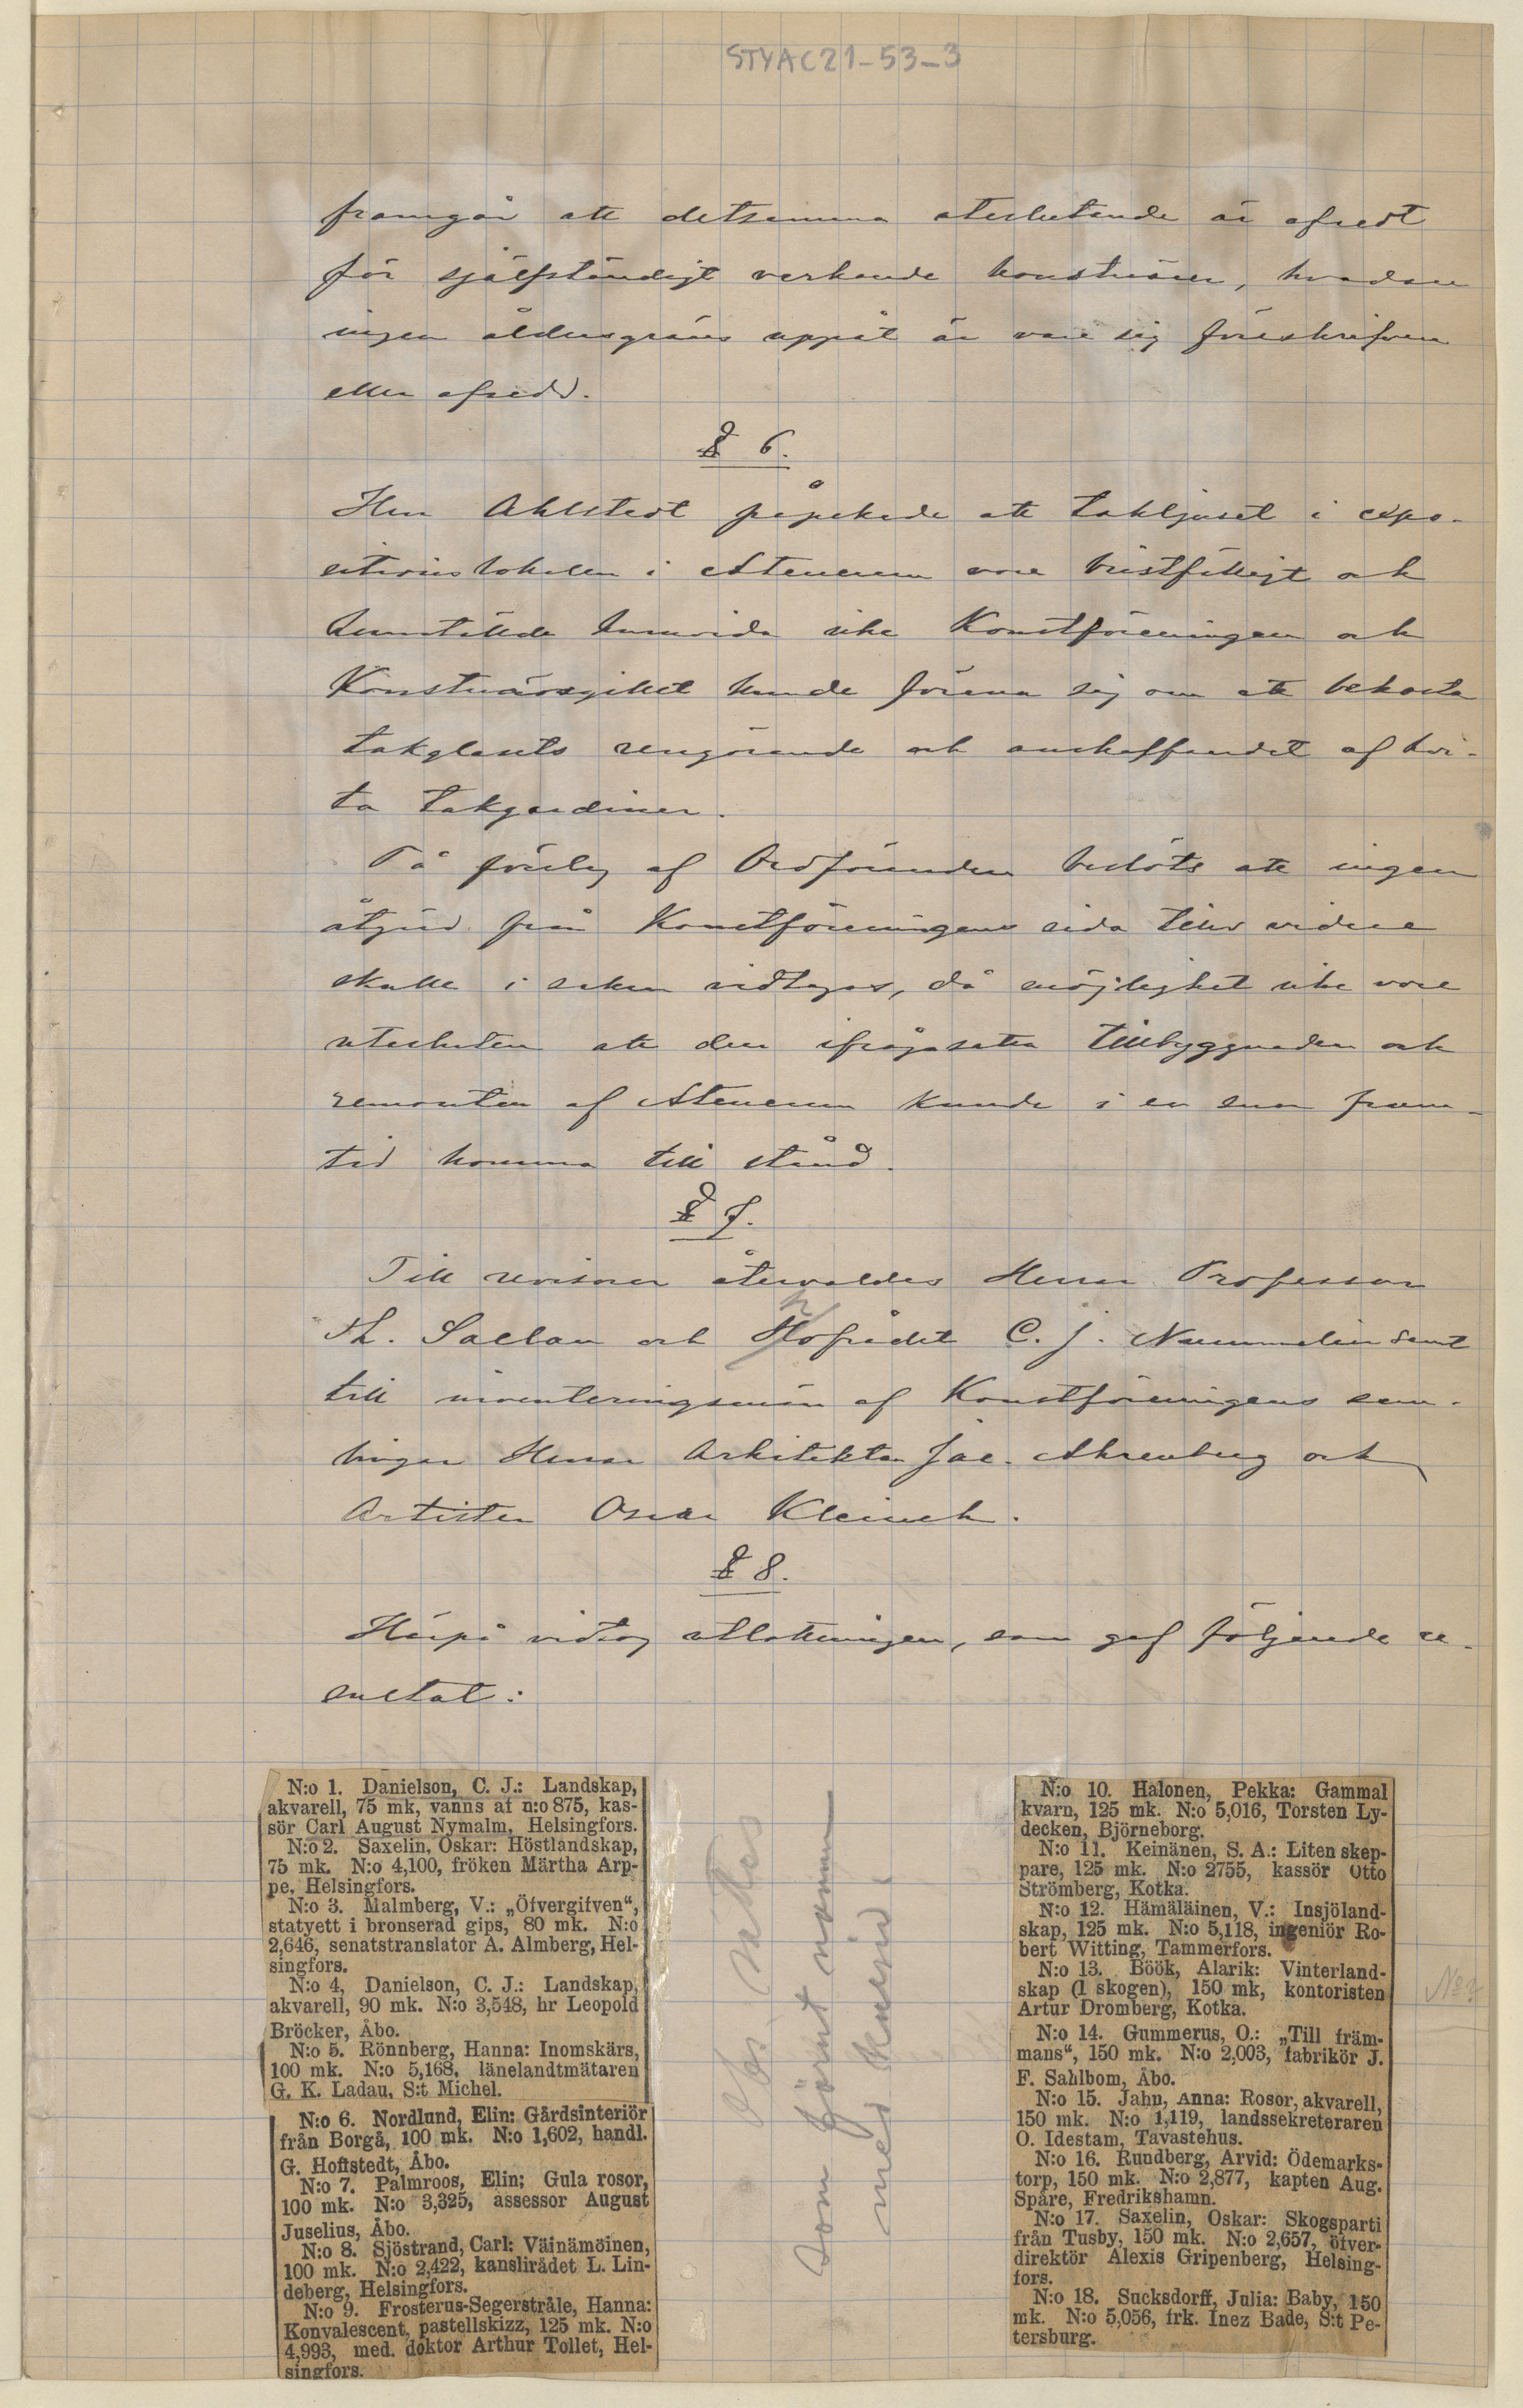 STYAC21-53-3
framgår att detsamma uteslutande är afsedt
för själfständigt verkande konstnärer, hvadan
ingen åldersgräns uppåt är vare sig föreskrifven
eller afsedd.
§ 6.
Herr Ahlstedt påpekade att takljuset i expo-
sitionslokalen i Ateneum vore bristfälligt och
hemställde huruvida icke Konstföreningen och
Konstnärsgillet kunde förena sig om att bekosta
takglasets rengörande och anskaffandet af hvi-
ta takgardiner.
På förslag af Ordföranden beslöts att ingen
åtgärd från Konstföreningens sida tills vidare
skulle i saken vidtagas, då möjlighet icke vore
utesluten att den ifrågasatta tillbyggnaden och
remonten af Ateneum kunde i en snar fram-
tid komma till stånd.
§ 7.
Till revisorer återvaldes Herrar Professor
Th. Saelan och Hofrådet C. J. Nummelin samt
till inventeringsmän af Konstföreningens sam-
lingar Herrar Arkitekten Jac. Ahrenberg och
Artisten Oscar Kleineh.
§ 8.
Härpå vidtog utlottningen, som gaf följande re-
sultat:
N:o 1. Danielson, C. J.: Landskap,
akvarell, 75 mk, vanns af n:o 875, kas-
sör Carl August Nymalm, Helsingfors.
N:o 2. Saxelin, Oskar: Höstlandskap,
75 mk. N:o 4,100, fröken Märtha Arp-
pe, Helsingfors.
N:o 3. Malmberg, V.: „Öfvergifven“,
statyett i bronserad gips, 80 mk. N:o
2,646, senatstranslator A. Almberg, Hel-
singfors.
N:o 4, Danielson, C. J.: Landskap,
akvarell, 90 mk. N:o 3,548, hr Leopold
Bröcker, Åbo.
N:o 5. Rönnberg, Hanna: Inomskärs,
100 mk. N:o 5,168, länelandtmätaren
G. K. Ladau, S:t Michel.
N:o 6. Nordlund, Elin: Gårdsinteriör
från Borgå, 100 mk. N:o 1,602, handl.
G. Hoffstedt, Åbo.
N:o 7. Palmroos, Elin: Gula rosor,
100 mk. N:o 3,325, assessor August
Juselius, Åbo.
N:o 8. Sjöstrand, Carl: Väinämöinen,
100 mk. N:o 2,422, kanslirådet L. Lin-
deberg, Helsingfors.
N:o 9. Frosterus-Segerstråle, Hanna:
Konvalescent, pastellskizz, 125 mk. N:o
4,993, med. doktor Arthur Tollet, Hel-
singfors.
Obs. sättes
som jämnt
med kursiv.
N:o 10. Halonen, Pekka: Gammal
kvarn, 125 mk. N:o 5,016, Torsten Ly-
decken, Björneborg.
N:o 11. Keinänen, S. A.: Liten skep-
pare, 125 mk. N:o 2755, kassör Otto
Strömberg, Kotka.
N:o 12. Hämäläinen, V.: Insjöland-
skap, 125 mk. N:o 5,118, ingeniör Ro-
bert Witting, Tammerfors.
N:o 13. Böök, Alarik: Vinterland-
skap (I skogen), 150 mk, kontoristen
Artur Dromberg, Kotka.
N:o 14. Gummerus, O.: „Till främ-
mans“, 150 mk. N:o 2,003, fabrikör J.
F. Sahlbom, Åbo.
N:o 15. Jahn, Anna: Rosor, akvarell,
150 mk. N:o 1,119, landssekreteraren
O. Idestam, Tavastehus.
N:o 16. Rundberg, Arvid: Ödemarks-
torp, 150 mk. N:o 2,877, kapten Aug.
Spåre, Fredrikshamn.
N:o 17. Saxelin, Oskar: Skogsparti
från Tusby, 150 mk. N:o 2,657, öfver-
direktör Alexis Gripenberg, Helsing-
fors.
N:o 18. Sucksdorff, Julia: Baby, 150
mk. N:o 5,056, frk. Inez Bade, S:t Pe-
tersburg.
No ?